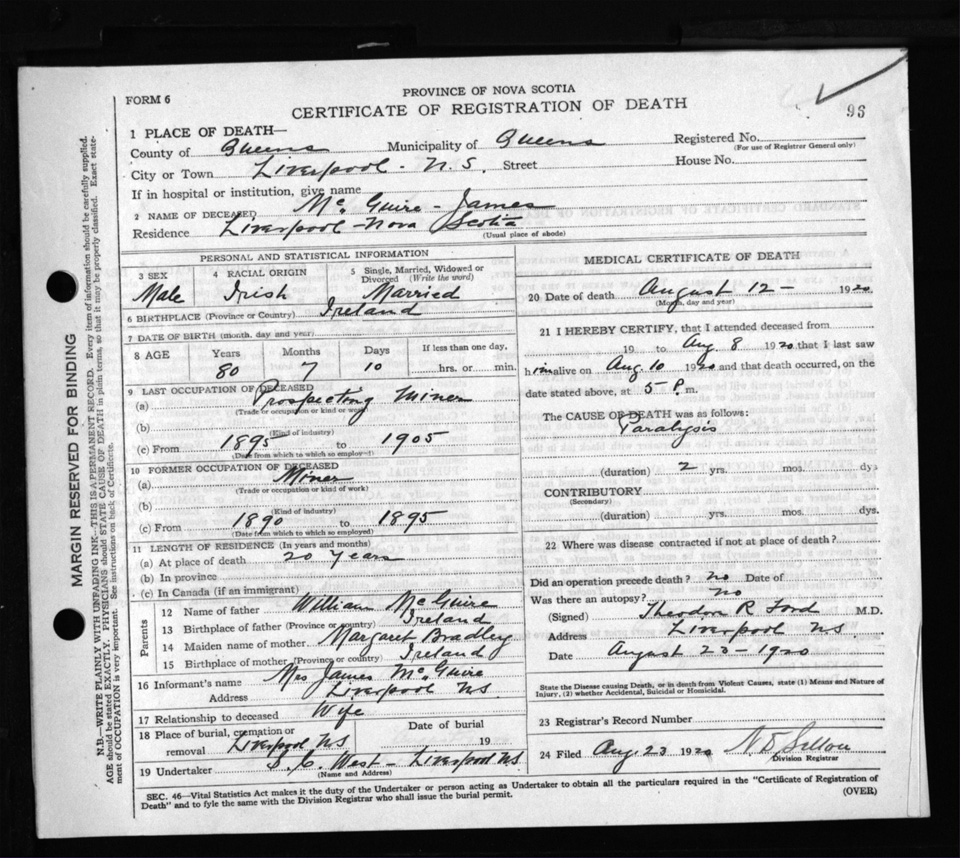 PROVINCE OF NOVA SCOTIA
FORM 6
CERTIFICATE OF REGISTRATION OF DEATH
96
1 PLACE OF DEATH—
County of Queens Municipality of Queens Registered No.
(For use of Registrar General only)
City or Town Liverpool - N.S. Street House No.
If in hospital or institution, give name
2 NAME OF DECEASED McGuire - James
Residence Liverpool - Nova Scotia
(Usual place of abode)
PERSONAL AND STATISTICAL INFORMATION
3 SEX Male
4 RACIAL ORIGIN Irish
5 Single, Married, Widowed or Divorced (Write the word) Married
6 BIRTHPLACE (Province or Country) Ireland
7 DATE OF BIRTH (month, day and year)
8 AGE Years 80 Months 7 Days 10 If less than one day, hrs. or min.
9 LAST OCCUPATION OF DECEASED
(a) Prospecting Miner
(Trade or occupation or kind of work)
(b)
(Kind of industry)
(c) From 1895 to 1905
(Date from which to which so employed)
10 FORMER OCCUPATION OF DECEASED
(a) Miner
(Trade or occupation or kind of work)
(b)
(Kind of industry)
(c) From 1890 to 1895
(Date from which to which so employed)
11 LENGTH OF RESIDENCE (In years and months)
(a) At place of death 20 Years
(b) In province
(c) In Canada (if an immigrant)
Parents
12 Name of father William McGuire
13 Birthplace of father (Province or country) Ireland
14 Maiden name of mother Margaret Bradley
15 Birthplace of mother (Province or country) Ireland
16 Informant's name Mrs James McGuire
Address Liverpool N.S.
17 Relationship to deceased Wife
18 Place of burial, cremation or removal Liverpool NS
Date of burial 19
19 Undertaker D. C. West - Liverpool NS
(Name and Address)
MEDICAL CERTIFICATE OF DEATH
20 Date of death August 12 - 1920
(Month, day and year)
21 I HEREBY CERTIFY, that I attended deceased from
19 to Aug. 8 1920 that I last saw
him alive on Aug 10 1920 and that death occurred, on the
date stated above, at 5 P. m.
The CAUSE OF DEATH was as follows:
Paralysis
(duration) 2 yrs. mos. dys
CONTRIBUTORY
(Secondary)
(duration) yrs. mos. dys.
22 Where was disease contracted if not at place of death?
Did an operation precede death? no Date of
Was there an autopsy? no
(Signed) Theodor R Ford M.D.
Address Liverpool NS.
Date August 23 - 1920
State the Disease causing Death, or in death from Violent Causes, state (1) Means and Nature of
Injury, (2) whether Accidental, Suicidal or Homicidal.
23 Registrar's Record Number
24 Filed Aug 23 1920
Division Registrar
SEC. 46—Vital Statistics Act makes it the duty of the Undertaker or person acting as Undertaker to obtain all the particulars required in the "Certificate of Registration of
Death" and to fyle the same with the Division Registrar who shall issue the burial permit.
(OVER)
MARGIN RESERVED FOR BINDING
N.B.—WRITE PLAINLY WITH UNFADING INK—THIS IS A PERMANENT RECORD. Every item of information should be carefully supplied.
AGE should be stated EXACTLY. PHYSICIANS should STATE CAUSE OF DEATH in plain terms, so that it may be properly classified. Exact state-
ment of OCCUPATION is very important. See instructions on back of Certificate.